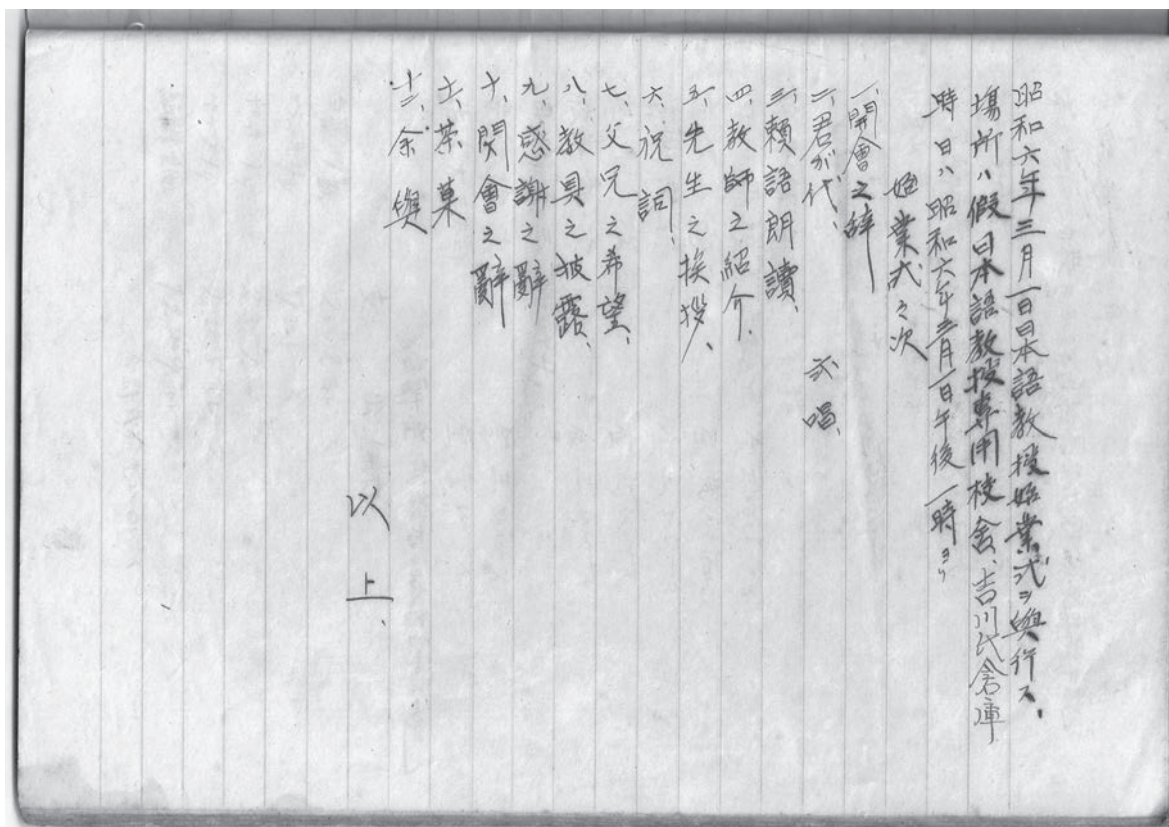 昭和六年三月一日日本語教授始業式ヲ興行ス、
場所ハ假日本語教授専用校舎、吉川氏倉庫
時日ハ昭和六年三月一日午後一時ヨリ
始業式之次
一、開會之辞
二、君が代、 弍唱、
三、賴語朗讀、
四、教師之紹介、
五、先生之挨拶、
六、祝詞、
七、父兄之希望、
八、教具之披露、
九、感謝之辭
十、閉會之辭
十一、茶菓
十二、余興
以上、